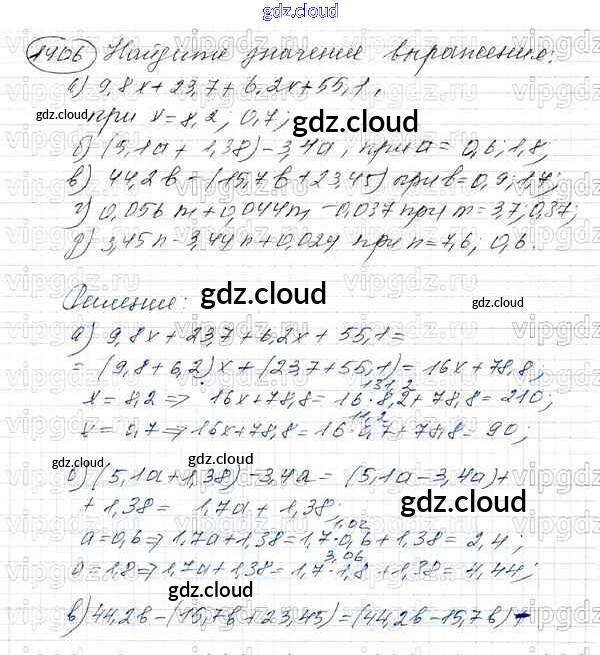 gdz.cloud
1406 Найдите значение выражения:
а) 9,8x + 23,7 + 6,2x + 55,1,
при x = 8,2; 0,7;
gdz.cloud
б) (5,1a + 1,38) - 3,4a; при a = 0,6; 1,8;
в) 44,2b - (15,7b + 23,45) при b = 0,9; 1,7;
г) 0,056m + 0,044m - 0,037 при m = 3,7; 0,37;
д) 3,45n - 3,44n + 0,024 при n = 7,6; 0,6.
gdz.cloud
Решение: gdz.cloud gdz.cloud
а) 9,8x + 23,7 + 6,2x + 55,1 =
= (9,8 + 6,2)x + (23,7 + 55,1) = 16x + 78,8;
131,2
x = 8,2 => 16x + 78,8 = 16 · 8,2 + 78,8 = 210;
11,2
x = 0,7 => 16x + 78,8 = 16 · 0,7 + 78,8 = 90;
gdz.cloud gdz.cloud
б) (5,1a + 1,38) - 3,4a = (5,1a - 3,4a) +
+ 1,38 = 1,7a + 1,38; gdz.cloud
1,02
a = 0,6 => 1,7a + 1,38 = 1,7 · 0,6 + 1,38 = 2,4;
3,06
a = 1,8 => 1,7a + 1,38 = 1,7 · 1,8 + 1,38 = 4,44;
gdz.cloud gdz.cloud
в) 44,2b - (15,7b + 23,45) = (44,2b - 15,7b) -